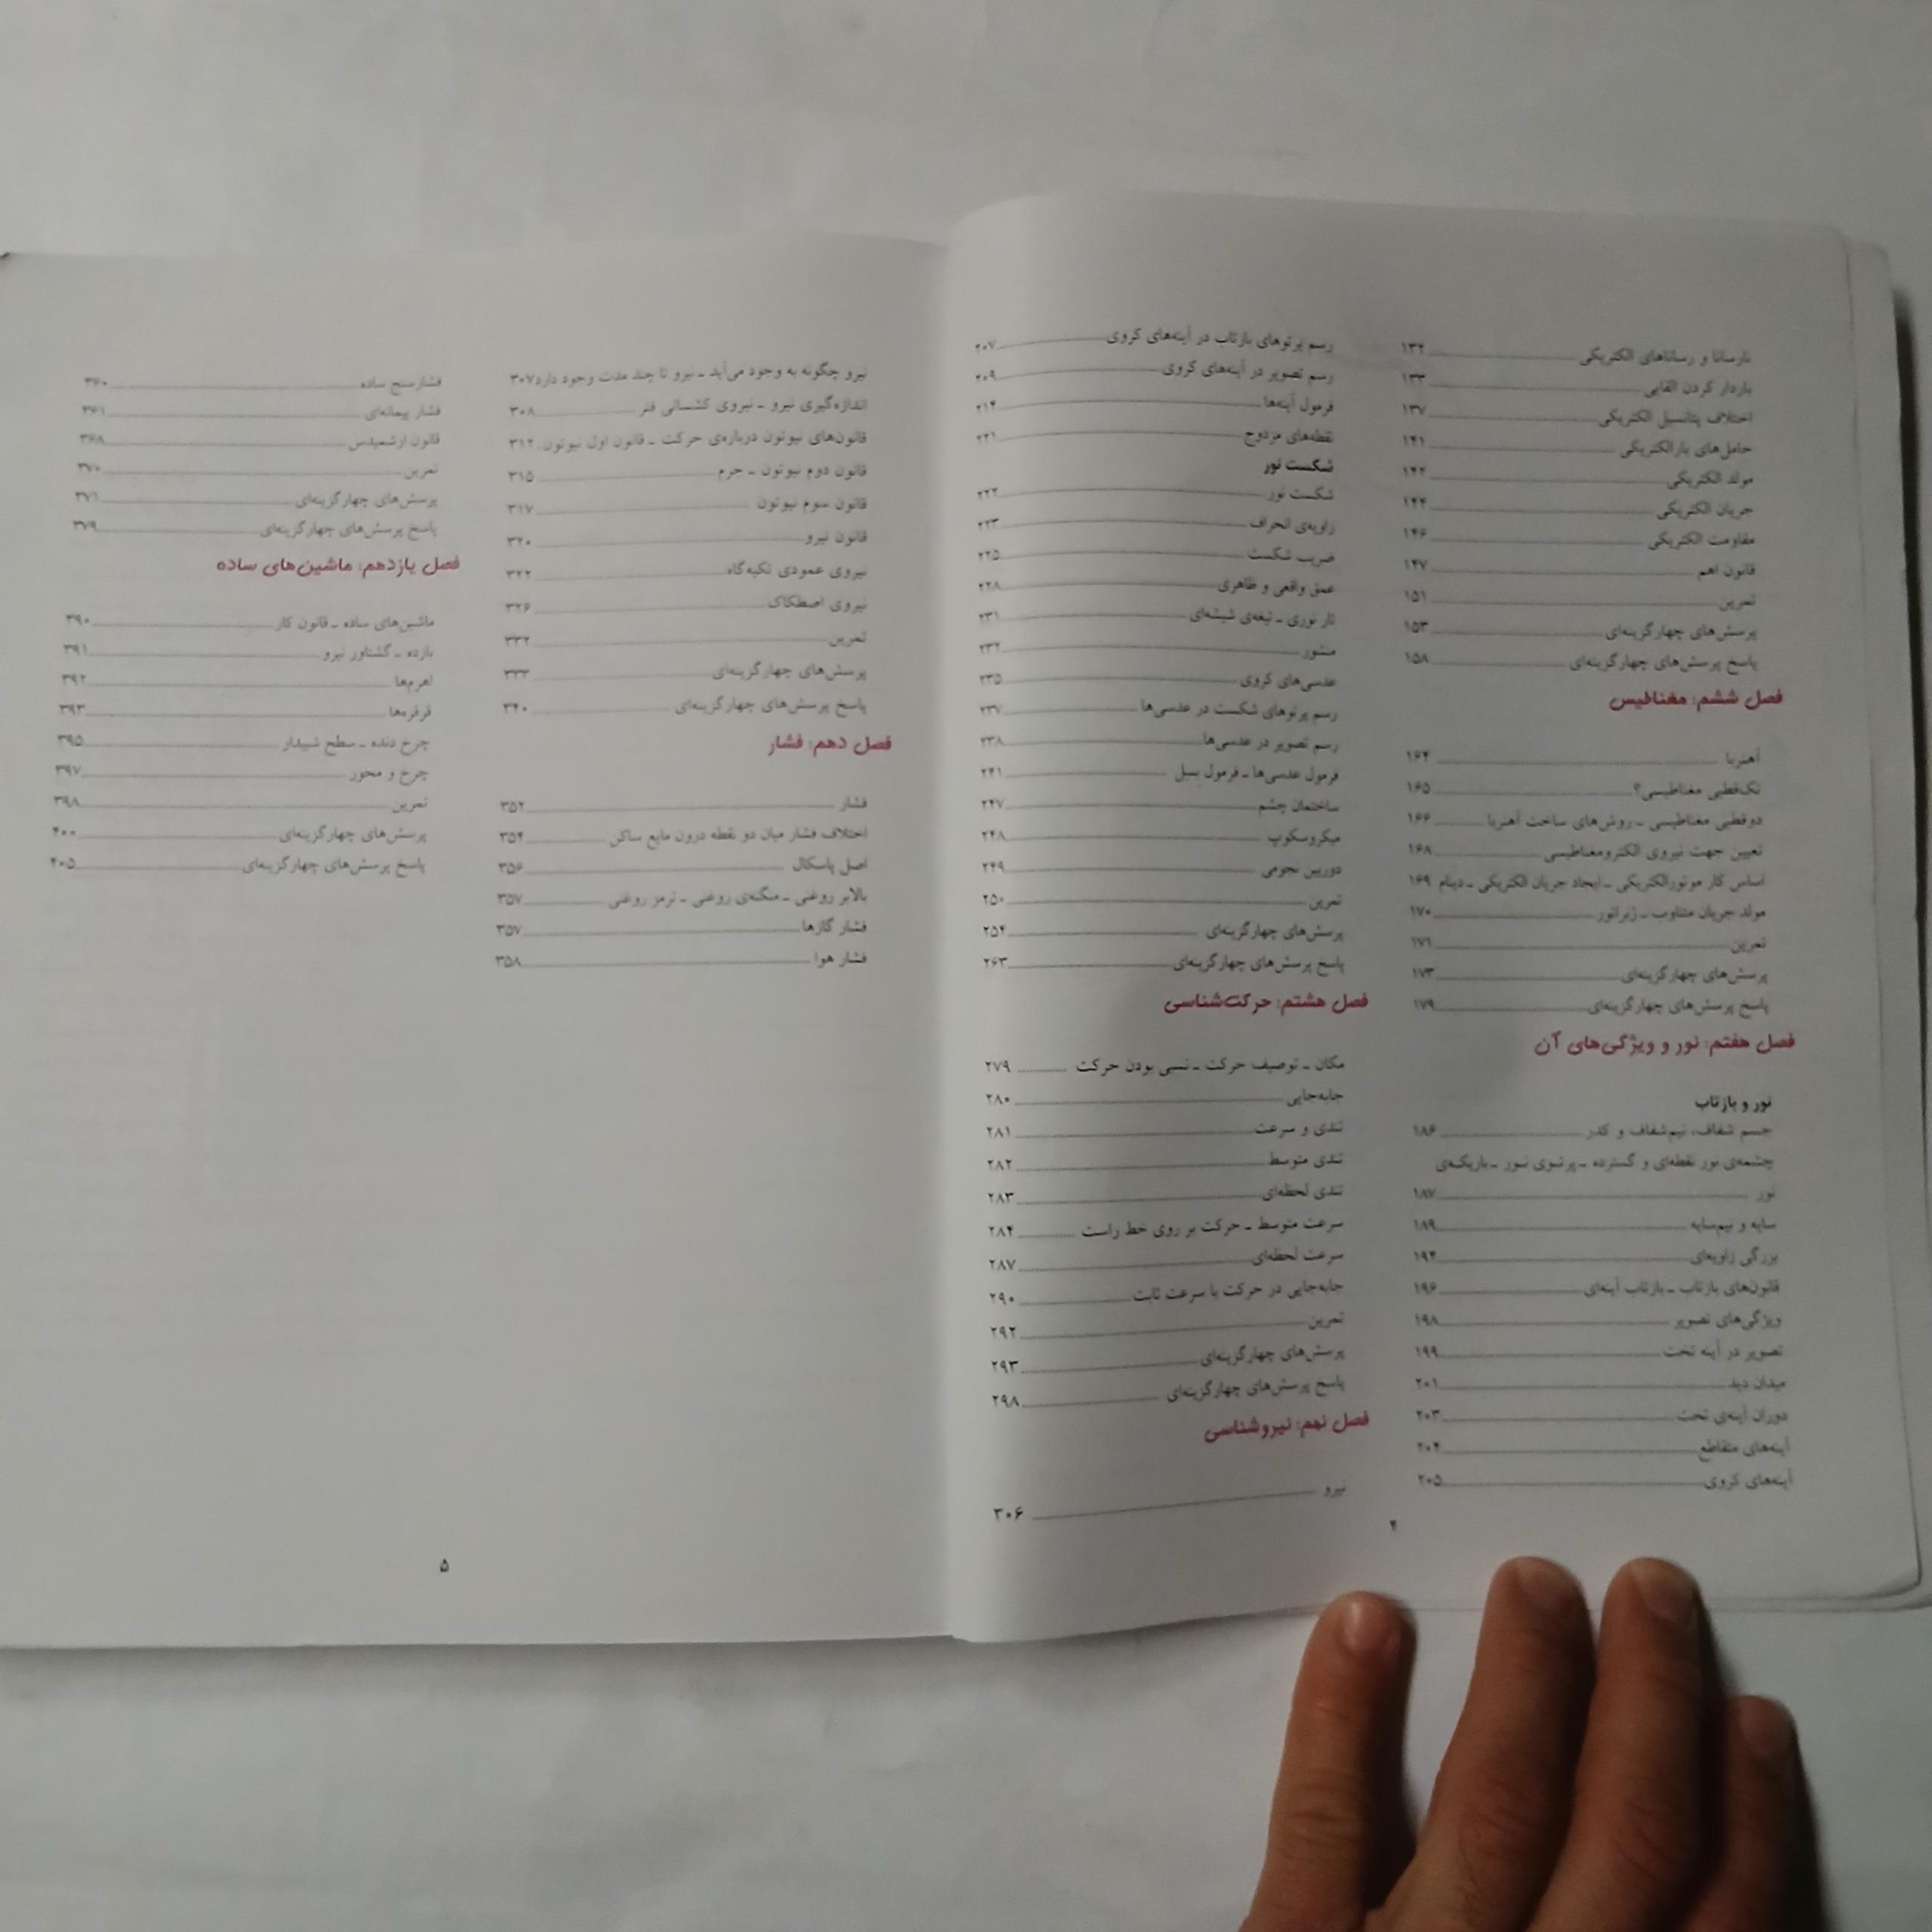 نارسانا و رساناهای الکتریکی ۱۳۲
باردار کردن القایی ۱۳۳
اختلاف پتانسیل الکتریکی ۱۳۷
حامل‌های بارالکتریکی ۱۴۱
مولد الکتریکی ۱۴۲
جریان الکتریکی ۱۴۴
مقاومت الکتریکی ۱۴۶
قانون اهم ۱۴۷
تمرین ۱۵۱
پرسش‌های چهارگزینه‌ای ۱۵۳
پاسخ پرسش‌های چهارگزینه‌ای ۱۵۸
فصل ششم: مغناطیس
آهنربا ۱۶۴
تک‌قطبی مغناطیسی؟ ۱۶۵
دوقطبی مغناطیسی ـ روش‌های ساخت آهنربا ۱۶۶
تعیین جهت نیروی الکترومغناطیسی ۱۶۸
اساس کار موتورالکتریکی ـ ایجاد جریان الکتریکی ـ دینام ۱۶۹
مولد جریان متناوب ـ ژنراتور ۱۷۰
تمرین ۱۷۱
پرسش‌های چهارگزینه‌ای ۱۷۳
پاسخ پرسش‌های چهارگزینه‌ای ۱۷۹
فصل هفتم: نور و ویژگی‌های آن
نور و بازتاب
جسم شفاف، نیم‌شفاف و کدر ۱۸۶
چشمه‌ی نور نقطه‌ای و گسترده ـ پرتوی نور ـ باریکه‌ی
نور ۱۸۷
سایه و نیم‌سایه ۱۸۹
بزرگی زاویه‌ای ۱۹۴
قانون‌های بازتاب ـ بازتاب آینه‌ای ۱۹۶
ویژگی‌های تصویر ۱۹۸
تصویر در آینه تخت ۱۹۹
میدان دید ۲۰۱
دوران آینه‌ی تخت ۲۰۳
آینه‌های متقاطع ۲۰۴
آینه‌های کروی ۲۰۵
رسم پرتوهای بازتاب در آینه‌های کروی ۲۰۷
رسم تصویر در آینه‌های کروی ۲۰۹
فرمول آینه‌ها ۲۱۴
نقطه‌های مزدوج ۲۲۱
شکست نور
شکست نور ۲۲۲
زاویه‌ی انحراف ۲۲۳
ضریب شکست ۲۲۵
عمق واقعی و ظاهری ۲۲۸
تار نوری ـ تیغه‌ی شیشه‌ای ۲۳۱
منشور ۲۳۲
عدسی‌های کروی ۲۳۵
رسم پرتوهای شکست در عدسی‌ها ۲۳۷
رسم تصویر در عدسی‌ها ۲۳۸
فرمول عدسی‌ها ـ فرمول بسل ۲۴۱
ساختمان چشم ۲۴۷
میکروسکوپ ۲۴۸
دوربین نجومی ۲۴۹
تمرین ۲۵۰
پرسش‌های چهارگزینه‌ای ۲۵۴
پاسخ پرسش‌های چهارگزینه‌ای ۲۶۳
فصل هشتم: حرکت‌شناسی
مکان ـ توصیف حرکت ـ نسبی بودن حرکت ۲۷۹
جابه‌جایی ۲۸۰
تندی و سرعت ۲۸۱
تندی متوسط ۲۸۲
تندی لحظه‌ای ۲۸۳
سرعت متوسط ـ حرکت بر روی خط راست ۲۸۴
سرعت لحظه‌ای ۲۸۷
جابه‌جایی در حرکت با سرعت ثابت ۲۹۰
تمرین ۲۹۲
پرسش‌های چهارگزینه‌ای ۲۹۳
پاسخ پرسش‌های چهارگزینه‌ای ۲۹۸
فصل نهم: نیروشناسی
نیرو ۳۰۶
۴
نیرو چگونه به وجود می‌آید ـ نیرو تا چند مدت وجود دارد ۳۰۷
اندازه‌گیری نیرو ـ نیروی کشسانی فنر ۳۰۸
قانون‌های نیوتون درباره‌ی حرکت ـ قانون اول نیوتون ۳۱۲
قانون دوم نیوتون ـ جرم ۳۱۵
قانون سوم نیوتون ۳۱۷
قانون نیرو ۳۲۰
نیروی عمودی تکیه‌گاه ۳۲۲
نیروی اصطکاک ۳۲۶
تمرین ۳۳۲
پرسش‌های چهارگزینه‌ای ۳۳۳
پاسخ پرسش‌های چهارگزینه‌ای ۳۴۰
فصل دهم: فشار
فشار ۳۵۲
اختلاف فشار میان دو نقطه درون مایع ساکن ۳۵۴
اصل پاسکال ۳۵۶
بالابر روغنی ـ منگنه‌ی روغنی ـ ترمز روغنی ۳۵۷
فشار گازها ۳۵۷
فشار هوا ۳۵۸
فشارسنج ساده ۳۶۰
فشار پیمانه‌ای ۳۶۱
قانون ارشمیدس ۳۶۸
تمرین ۳۷۰
پرسش‌های چهارگزینه‌ای ۳۷۱
پاسخ پرسش‌های چهارگزینه‌ای ۳۷۹
فصل یازدهم: ماشین‌های ساده
ماشین‌های ساده ـ قانون کار ۳۹۰
بازده ـ گشتاور نیرو ۳۹۱
اهرم‌ها ۳۹۲
قرقره‌ها ۳۹۳
چرخ دنده ـ سطح شیبدار ۳۹۵
چرخ و محور ۳۹۷
تمرین ۳۹۸
پرسش‌های چهارگزینه‌ای ۴۰۰
پاسخ پرسش‌های چهارگزینه‌ای ۴۰۵
۵